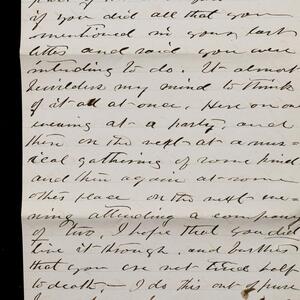 if you did all that you
mentioned in your last
letter and said you were
intending to do. It almost
bewilders my mind to think
of it all at once. Here on one
evening at a party, and
then on the next at a mus-
ical gathering of some kind
and then again at some
other place on the next eve-
ning attending a company
of two, I hope that you did
live it through, and further
that you are not tired half
to death, — I do this out of pure